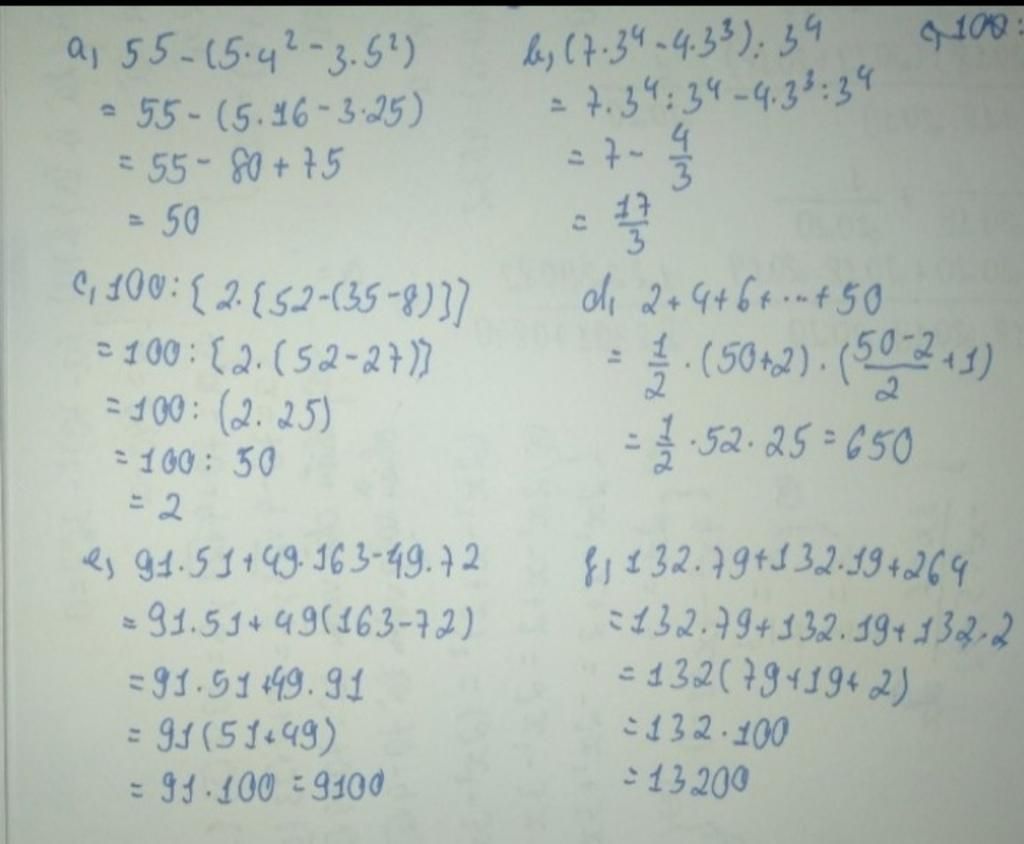 a, 55 - (5.4² - 3.5²)
= 55 - (5.16 - 3.25)
= 55 - 80 + 75
= 50
b, (7.3⁴ - 4.3³) : 3⁴
= 7.3⁴ : 3⁴ - 4.3³ : 3⁴
= 7 - 4/3
= 17/3
c, 100:
c, 100 : {2.{52-(35-8)}]
= 100 : {2.(52-27)}
= 100 : (2.25)
= 100 : 50
= 2
d, 2+4+6+...+50
= 1/2 . (50+2) . (50-2/2 + 1)
= 1/2 . 52 . 25 = 650
e, 91.51+49.163-49.72
= 91.51+49(163-72)
= 91.51+49.91
= 91(51+49)
= 91.100 = 9100
f, 132.79+132.19+264
= 132.79+132.19+132.2
= 132(79+19+2)
= 132.100
= 13200